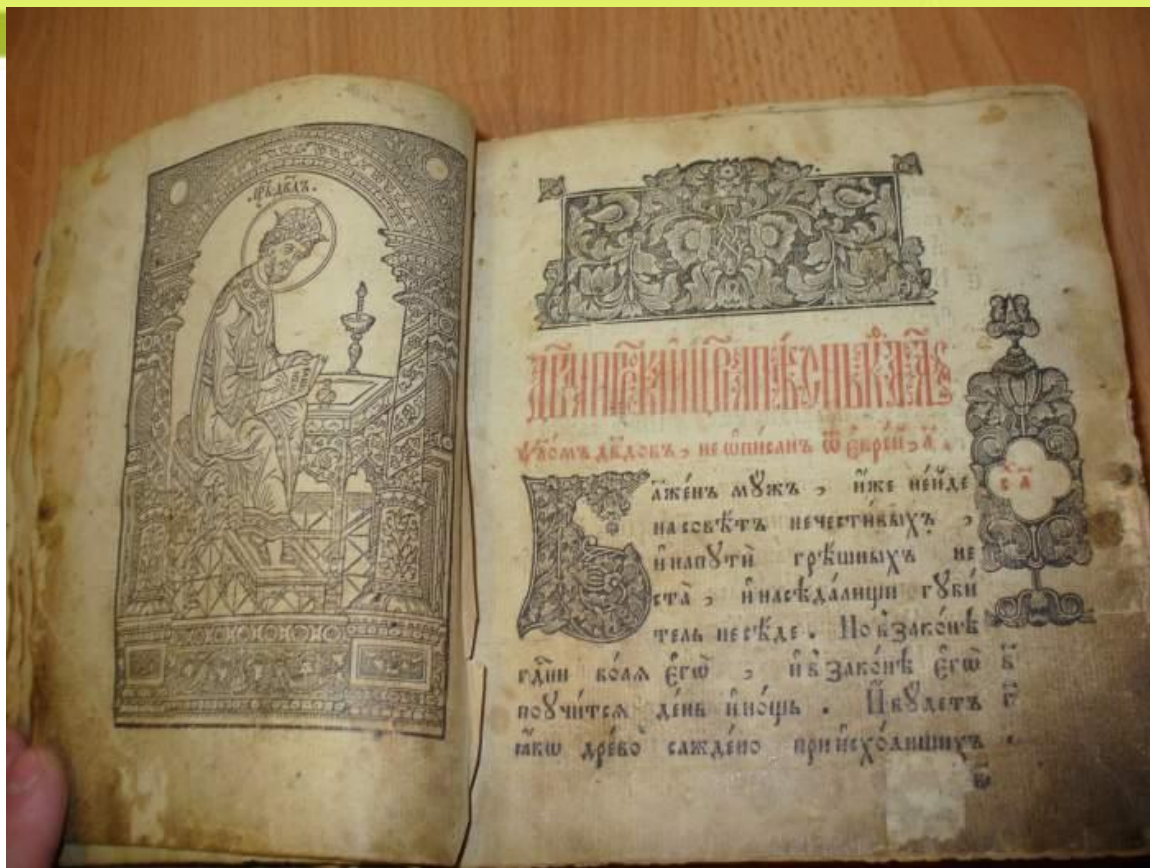 цр҃ь дв҃дъ.
дв҃да прⷪ҇рка и цр҃ѧ пѣснь
ѱал̾омъ дв҃довъ, не ѡписанъ ѿ еврей, а҃.
Бл҃аже́нъ мꙋжъ, и҆́же не и́де
на совѣ́тъ нечести́выхъ,
и҆ на пꙋти̑ грѣ́шныхъ не
ста̀, и҆ на сѣда́лищи гꙋби́
тель не сѣ́де. Но в̾ зако́нѣ
гдⷭ҇ни во́лѧ є҆гѡ̀, и҆ в̾ зако́нѣ є҆гѡ̀
поꙋчи́тсѧ де́нь и҆ но́щь. И҆ бꙋ́детъ
ꙗ҆́кѡ дре́во саждено̀ при и҆схо́дищихъ